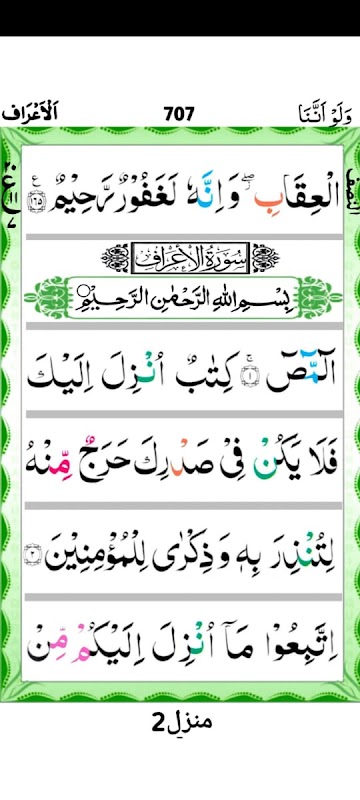 اَلْاَعْرَاف 707 وَلَوْ اَنَّنَا
الْعِقَابِ ۖ وَاِنَّهٗ لَغَفُوْرٌ رَّحِيْمٌ ۝۱۶۵
سُوْرَةُ الْاَعْرَافِ
بِسْمِ اللّٰهِ الرَّحْمٰنِ الرَّحِيْمِ
الٓمّٓصٓ ۝۱ كِتٰبٌ اُنْزِلَ اِلَيْكَ
فَلَا يَكُنْ فِيْ صَدْرِكَ حَرَجٌ مِّنْهُ
لِتُنْذِرَ بِهٖ وَذِكْرٰى لِلْمُؤْمِنِيْنَ ۝۲
اِتَّبِعُوْا مَآ اُنْزِلَ اِلَيْكُمْ مِّنْ
منزل2